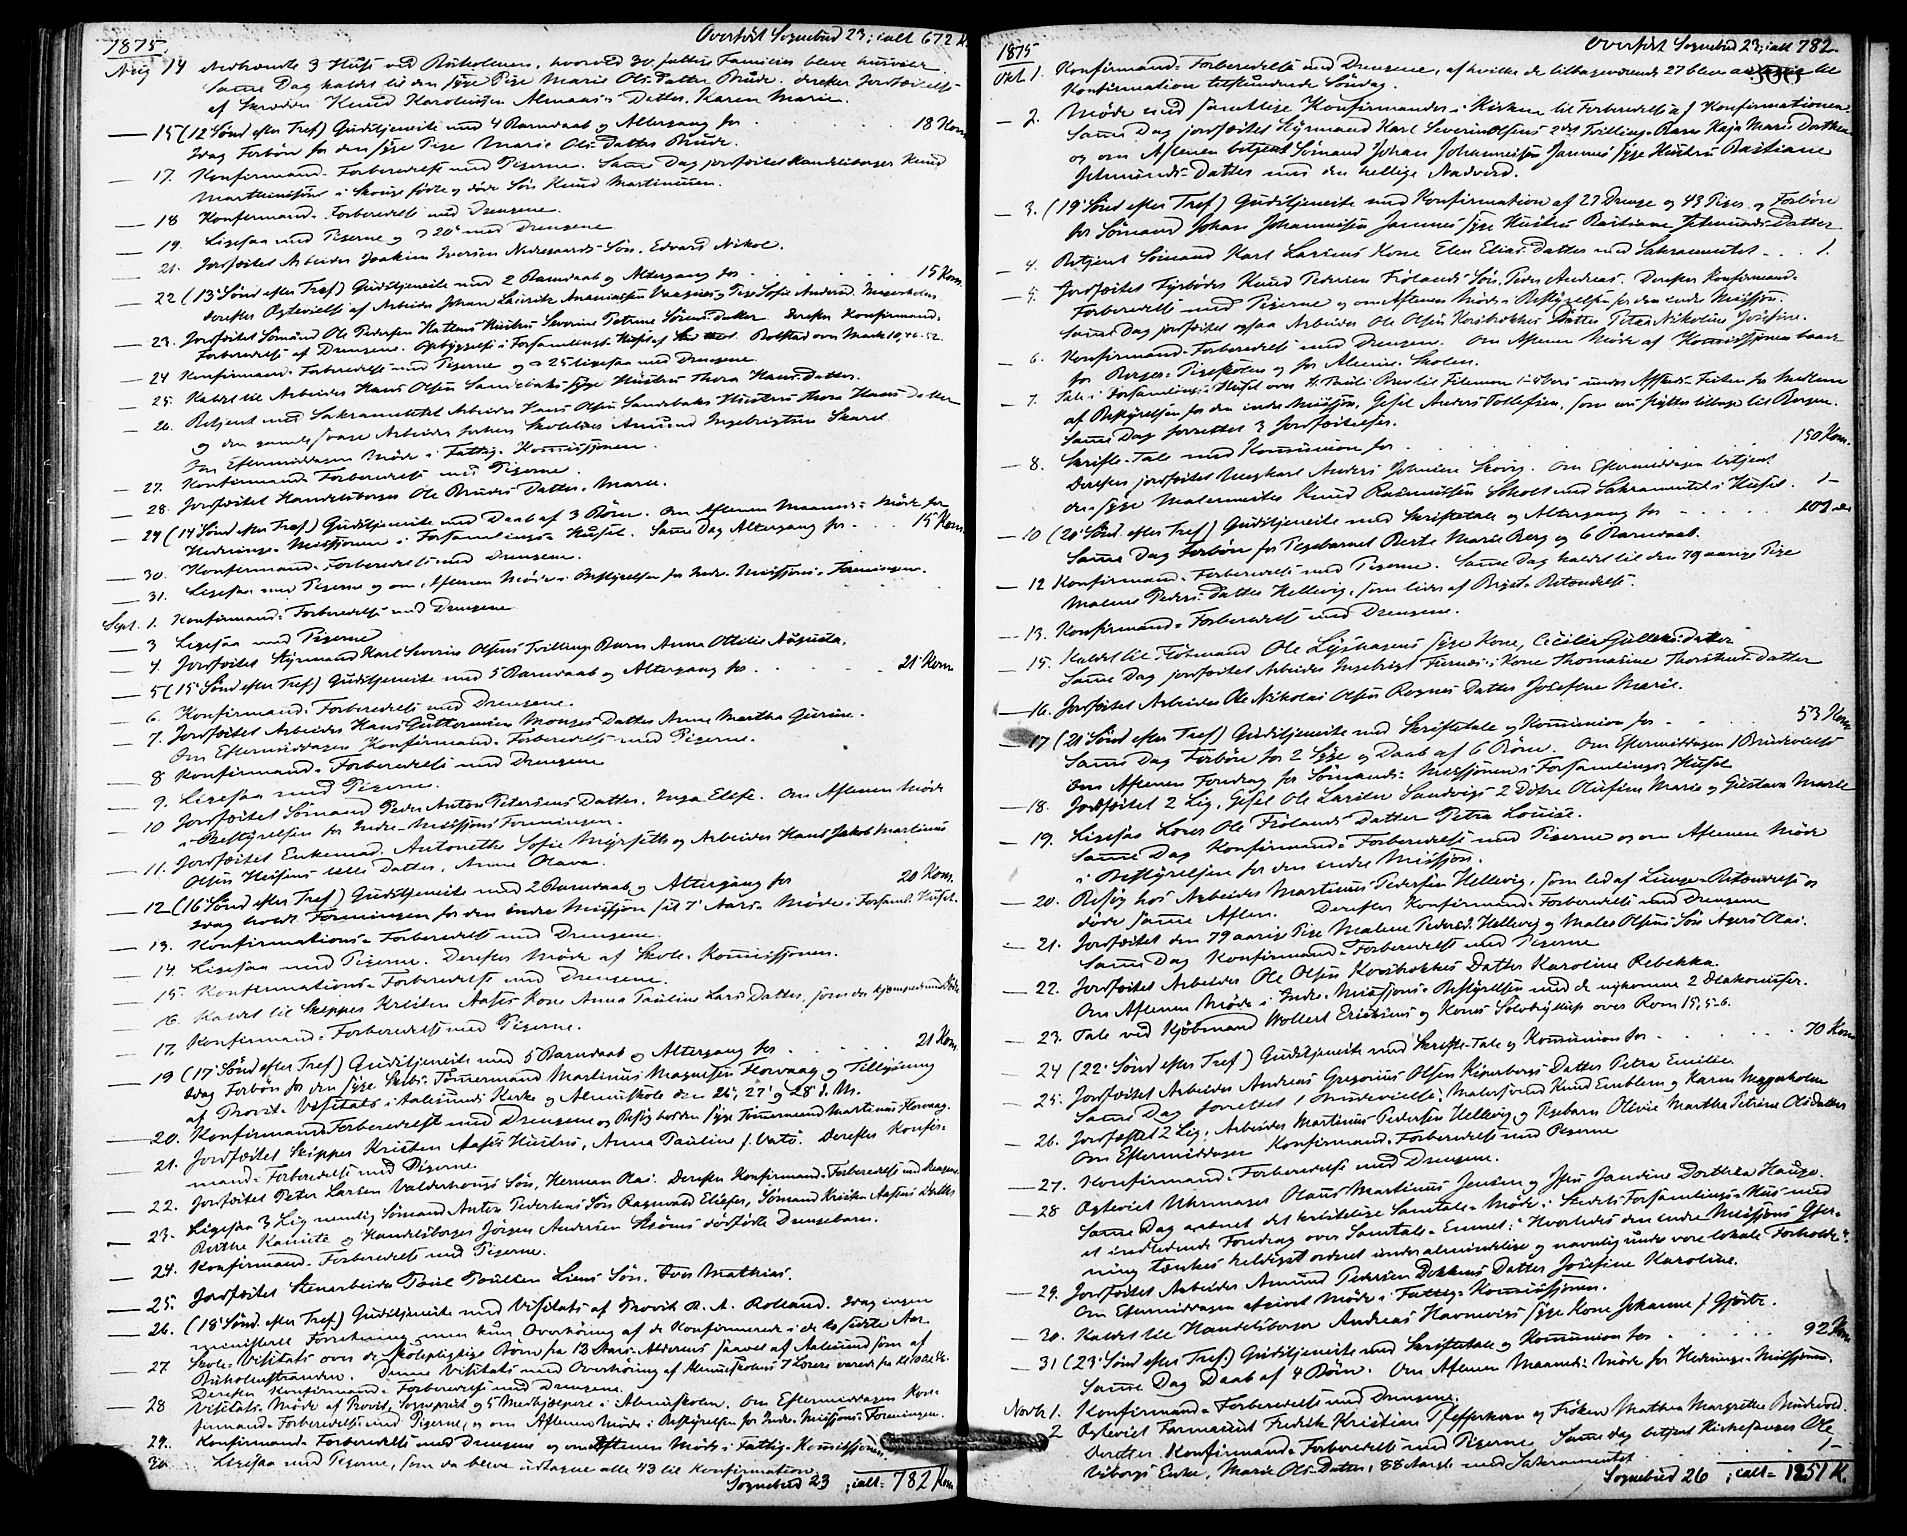 1875. Overført Sognebud 23, ialt 672 K.
Aug 14 nedbrændte 3 Huse ved Buholmen, hvorved 30 fattige Familier bleve husvilde
Samme Dag kaldet til den syge Pige Marie Ols Datter Brude. derefter Jordfæstelse
af Skrædder Knud Karoliussen Almaas's Datter, Karen Marie.
— 15 (12 Sønd efter Tref) Gudstjeneste med 4 Barnedaab og Altergang for . . . . 18 Kom
Idag Forbøn for den syge Pige Marie Ols Datter Brude.
— 17. Konfirmand-Forberedelse med Pigerne. Samme Dag jordfæstet Handelsborger Knud
Martinussens i Skovge fødte og døde Søn Knud Martinussen.
— 18 Konfirmand-Forberedelse med Drengene.
— 19. Ligesaa med Pigerne og d 20de med Drengene
— 21. Jordfæstet Arbeider Joakim Iversen Nedregaards Søn, Edvard Nikol.
— 22 (13 Sønd efter Tref) Gudstjeneste med 2 Barnedaab og Altergang for . . . . 15 Kom.
derefter Ægtevielse af Arbeider Johan
— 23. Jordfæstet Sømand Ole Pedersen Hustru Severine Petrine Sørens-Datter derefter Konfirmand-
Forberedelse af Drengene. Opbyggelse i Forsamlings-Huset over Mark 10,46-52.
— 24 Konfirmand-Forberedelse med Pigerne og d 25 ligesaa med Drengene
— 25. Kaldet til Arbeider Hans Olsen Sandebaks syge Hustru Thora Hans-Datter.
— 26. Betjent med Sakramentet Arbeider Hans Olsen Sandebaks Hustru Thora Hans Datter
og den gamle svage Arbeider forhen Skolelærer Amund Ingebrigtsen Skaret
Om Eftermiddagen Møde i Fattig-Kommissionen.
— 27. Konfirmand-Forberedelse med Pigerne.
— 28. Jordfæstet Handelsborger Ole Brudes Datter, Marie.
— 29 (14 Sønd efter Tref) Gudstjeneste med Daab af 3 Børn. Om Aftenen Maaneds-Møde for
Hednings-Missionen i Forsamlings-Huset. Samme Dag Altergang for . . . 15 Kom.
— 30. Konfirmand-Forberedelse med Drengene.
— 31. Ligesaa med Pigerne og om Aftenen Møde i Bestyrelsen for Indre-Missions-Foreningen.
Sept. 1. Konfirmand-Forberedelse med Drengene
— 3 Ligesaa med Pigerne
— 4. Jordfæstet Styrmand Karl Severin Olsens Tvillinge Barn Anna Ottilie Augusta.
— 5 (15 Sønd efter Tref) Gudstjeneste med 5 Barnedaab og Altergang for . . . 21 Kom
— 6. Konfirmand-Forberedelse med Drengene.
— 7. Jordfæstet Arbeider Hans Guttormsen Monges Datter Anne Martha Gurine.
Om Eftermiddagen Konfirmand-Forberedelse med Pigerne.
— 8 Konfirmand-Forberedelse med Drengene
— 9. Ligesaa med Pigerne.
— 10 Jordfæstet Sømand Peder Anton Petersens Datter, Inga Elise. Om Aftenen Møde
i Bestyrelsen for Indre-Missions Foreningen.
— 11. Jordfæstet Enkemad. Antonette Sofie Myrseth og Arbeider Hans Jakob Martinus
Olsen Datter, Anne Olava.
— 12 (16 Sønd efter Tref) Gudstjeneste med 2 Barnedaab og Altergang for 20 Kom.
Idag holdt Foreningen for den indre Mission sit 7de Aars-Møde i Forsaml. Huset.
— 13. Konfirmations-Forberedelse med Drengene.
— 14. Ligesaa med Pigerne. Derefter Møde af Skole-Kommissionen.
— 15. Konfirmations-Forberedelse med Drengene.
— 16. Kaldet til Skipper Kristen Aases Kone Anna Pauline Lars Datter, som da
— 17. Konfirmand-Forberedelse med Pigerne.
— 19 (17 Sønd efter Tref) Gudstjeneste med 5 Barnedaab og Altergang for . . . 21 Kom.
Idag Forbøn for den syge Skibs-Tømmermand Martinus Magnussen Horvaag og Tillysning
af Provst-Visitats i Aalesunds Kirke og Almueskole den 26, 27 og 28 d. M.
— 20. Konfirmand-Forberedelse med Drengene og Besøg hos den syge Tømmermand Martinus Horvaag.
— 21. Jordfæstet Skipper Kristen Aases Hustru, Anna Pauline f. Vatø. Derefter Konfir-
mand-Forberedelse med Pigerne.
— 22. Jordfæstet Peter Larsen Valderhougs Søn, Herman Olai. Derefter Konfirmand-Forberedelse med Drengene.
— 23. Ligesaa 3 Lig nemlig Sømand Anton Pedersens Søn Ragnvald Eliefer, Sømand Kristen Aasens Datter
Berthe Kamille og Handelsborger Jørgen Andersen Strøms dødfødte Drengebarn.
— 24. Konfirmand-Forberedelse med Pigerne.
— 25. Jordfæstet Stenarbeider Poul Poulsen Liens Søn, Iver Mathias.
— 26. (18 Sønd. efter Tref) Gudstjeneste med Visitats af Provst R. A. Rolland. Idag ingen
ministeriel Forretning men kun Overhøring af de Konfirmerede i de to sidste Aar
27 Skole-Visitats over de skolepligtige Børn fra 13 Aars-Alderen saavel af Aalesund som af
Buholmstranden. Denne Visitats med Overhøring af Almueskolens 7 Lærere varede fra
Derefter Konfirmand-Forberedelse med Drengene.
— 28 Visitats-Møde af Provst, Sognepræst og 5 Medhjælpere i Almueskolen. Om Eftermiddagen Kon-
firmand-Forberedelse med Pigerne, og om Aftenen Møde i Bestyrelsen for Indre-Missions-Foreningen.
29. Konfirmand-Forberedelse med Drengene og om Aftenen Møde i Fattig-Kommissionen
30 Ligesaa med Pigerne, som da bleve udtagne alle 43 til Konfirmation
Sognebud 23 ialt= 782 Kom
1875 Overført Sognebud 23, ialt 782
306
Okt 1. Konfirmand-Forberedelse med Drengene, af hvilke de tilbageværende 27 bleve til
Konfirmation tilstundende Søndag.
— 2. Møde med samtlige Konfirmander i Kirken til Forberedelse af Konfirmationen.
Samme Dag jordfæstet Styrmand Karl Severin Olsens 2det Tvillinge-Barn Kaja Marie Dorthea
og om Aftenen betjent Sømand Johan Johannesen Jannes syge Hustru Bastiane
Jetmunds-Datter med den hellige Nadverd.
— 3. (19 Sønd efter Tref) Gudstjeneste med Konfirmation af 27 Drenge og 43 Piger og Forbøn
for Sømand Johan Johannesen Jannes syge Hustru Bastiane Jetmunds-Datter
— 4. Betjent Sømand Karl Larsens Kone Elen Elias Datter med Sakramentet . . . 1.
— 5. Jordfæstet Fyrbøder Knud Pedersen Frølands Søn, Peder Andreas. Derefter Konfirmand-
Forberedelse med Pigerne og om Aftenen Møde i Bestyrelsen for den indre Mission.
Samme Dag jordfæstet ogsaa Arbeider Ole Olsen Korsbrekkes Datter Petra Nikoline Josefine.
6. Konfirmand-Forberedelse med Drengene. Om Aftenen Møde af Kommissionen baade
for Borger-Pigeskolen og for Almue-Skolen.
— 7. Tale i Forsamlings-Huset over St. Pauli Brev til Filemon 1-4 Vers under Afskeds-Festen for Medlem
af Bestyrelsen for den indre Mission, Gesel Anders Tollefsen, som nu flytter tilbage til Bergen.
Samme Dag forrettet 3 Jordfæstelser.
— 8. Skrifte-Tale med Kommunion for . . . . 150 Kom.
Derefter jordfæstet Ungkarl Anders Johnsen Skovg. Om Eftermiddagen betjent
den syge Malermester Knud Rasmussen Skold med Sakramentet i Huset. 1—
— 10 (20 Sønd. efter Tref) Gudstjeneste med Skriftetale og Altergang for . . . . 109
Samme Dag Forbøn for Pigebarnet Berte Marie Berg og 6 Barnedaab.
— 12 Konfirmand-Forberedelse med Pigerne. Samme Dag kaldet til den 79 aarige Pige
Malene Peders-Datter Hellevig, som lider af Bryst-Betændelse.
— 13. Konfirmand-Forberedelse med Drengene.
— 15. Kaldet til Fløtmand Ole Lyshagens syge Kone, Cecilie
Samme Dag jordfæstet Arbeider Ingebrigt Furnes's Kone Thomasine Thorstens-Datter
— 16. Jordfæstet Arbeider Ole Nikolai Olsen Rognes Datter Josefine Marie.
— 17 (21 Sønd efter Tref) Gudstjeneste med Skriftetale og Kommunion for . . . 53 Kom
Samme Dag Forbøn for 2 Syge og Daab af 6 Børn. Om Eftermiddagen 1 Brudevielse
Om Aftenen Foredrag for Sømands-Missionen i Forsamlings-Huset
— 18. Jordfæstet 2 Lig, Gesel Ole Larsen Sandvigs 2 Døtre Olufine Marie og Gustava Marie
— 19. Ligesaa Loses Ole Frølands Datter Petra Louise.
Samme Dag Konfirmand-Forberedelse med Pigerne og om Aftenen Møde
i Bestyrelsen for den indre Mission.
— 20. Besøg hos Arbeider Martinus Pedersen Hellevig, som led af Lunge-Betændelse og
døde samme Aften. Derefter Konfirmand-Forberedelse med Drengene
— 21. Jordfæstet den 79 aarige Pige Malene Pedersd. Hellevig og Males Olsens Søn Agers Olai.
Samme Dag Konfirmand-Forberedelse med Pigerne
— 22. Jordfæstet Arbeider Ole Olsen Korsbrekkes Datter Karoline Rebekka.
Om Aftenen Møde i Indre-Missions-Bestyrelsen med de nykomne 2 Diakonisser.
— 23. Tale ved Kjøbmand Wollert Ericksens og Kones Sølvbryllup over Rom 15, 5-6.
— 24 (22 Sønd efter Tref) Gudstjeneste med Skrifte-Tale og Kommunion for . . . 70 Kom
— 25. Jordfæstet Arbeider Andreas Gregorius Olsen Kipperbergs Datter Petra Emilie
Samme Dag forrettet 1 Brudevielse: Malersvend Knud Emblem og Karen Meyerholm
— 26. Jordfæstet 2 Lig, Arbeider Martinus Pedersen Hellevig og Pigebarn Olivie Marthe Petrine Olsdatter
Om Eftermiddagen Konfirmand-Forberedelse med Pigerne
— 27. Konfirmand-Forberedelse med Drengene.
— 28 Ægteviet Uhrmager Olaus Martinus Jensen og Jfr Jandine Dorthea Hauge.
Samme Dag aabnet det kristelige Samtale-Møde i Stedets Forsamlings-Hus med
et indledende Foredrag over Samtale-Emnet: "Hvorledes den indre Missions Gjer-
ning tænkes heldigst ordnet under almindelige og navnlig under vore lokale Forholde".
— 29. Jordfæstet Arbeider Amund Pedersen Dokkens Datter Josefine Karoline.
Om Eftermiddagen Møde i Fattig-Kommissionen.
— 30. Kaldet til Handelsborger Andreas Havnevigs syge Kone Johanne f. Gjørtz.
— 31 (23 Sønd efter Tref.) Gudstjeneste med Skriftetale og Kommunion for . . . 92 Kom
Samme Dag Daab af 4 Børn. Om Aftenen Maaneds-Møde for Hednings-Missionen.
Novbr 1. Konfirmand-Forberedelse med Drengene.
— 2 Ægteviet Farmaceut Fredrik Kristian Pfefferkorn og Frøken Mathea Margrethe Bredevold.
Derefter Konfirmand-Forberedelse med Pigerne. Samme Dag betjent Kirkesanger Ole
Viborgs Enke, Marie Ols-Datter, 88 Aargl. med Sakramentet 1—
Sognebud 26 ; ialt= 1251 K.